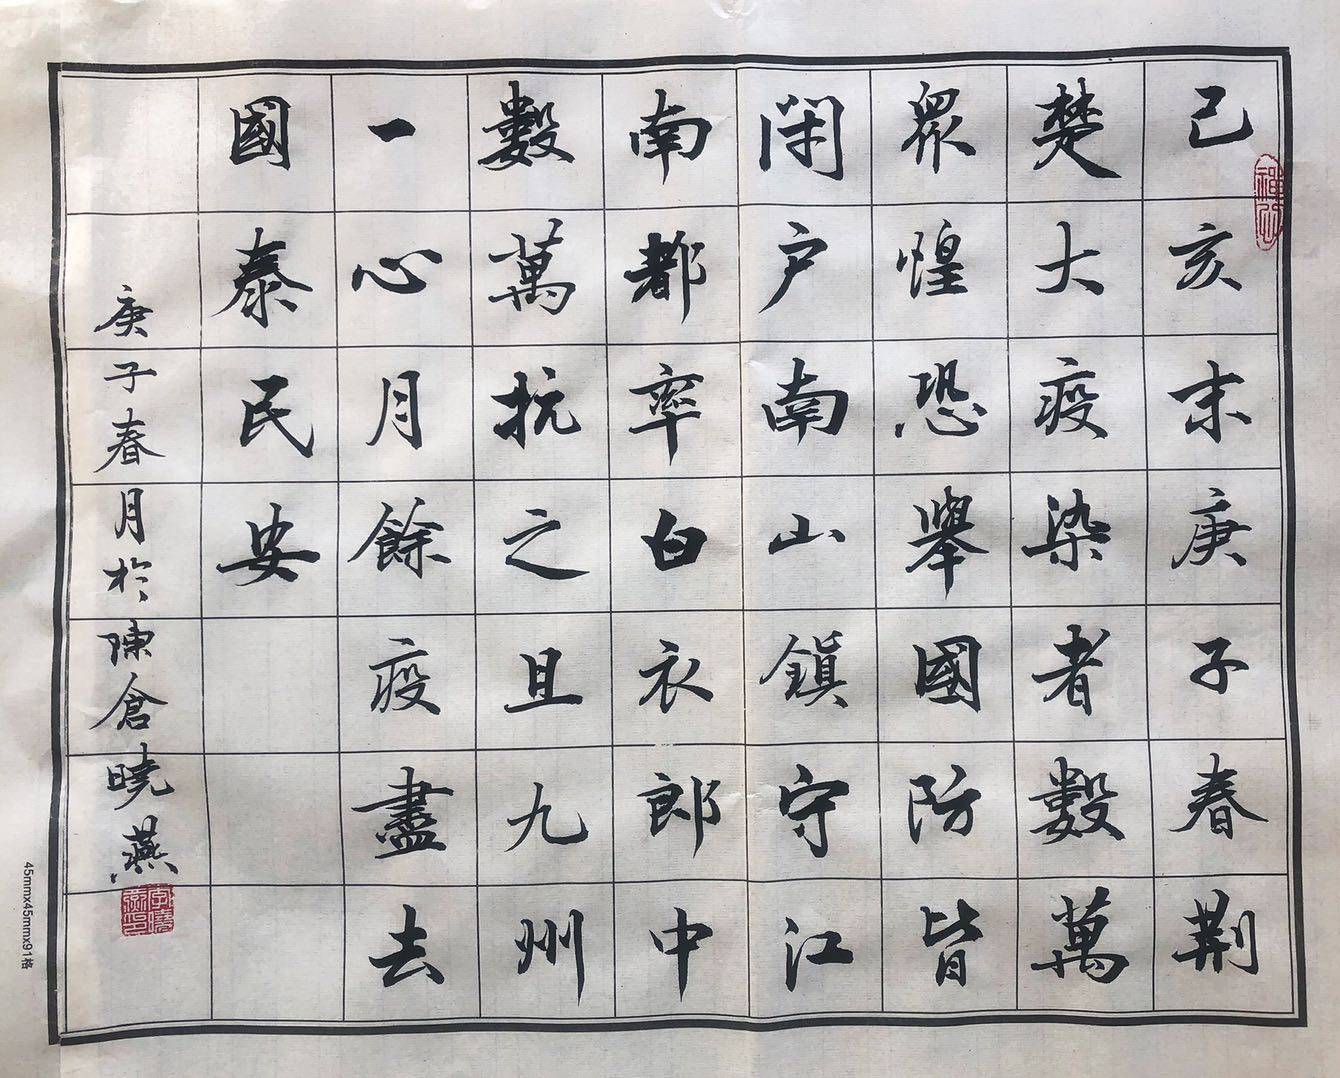 己亥末庚子春荆
楚大疫染者數萬
眾惶恐舉國防皆
閉户南山鎮守江
南都率白衣郎中
數萬抗之且九州
一心月餘疫盡去
國泰民安
庚子春月於陳倉曉燕
李曉燕印
45mmx45mmx91格